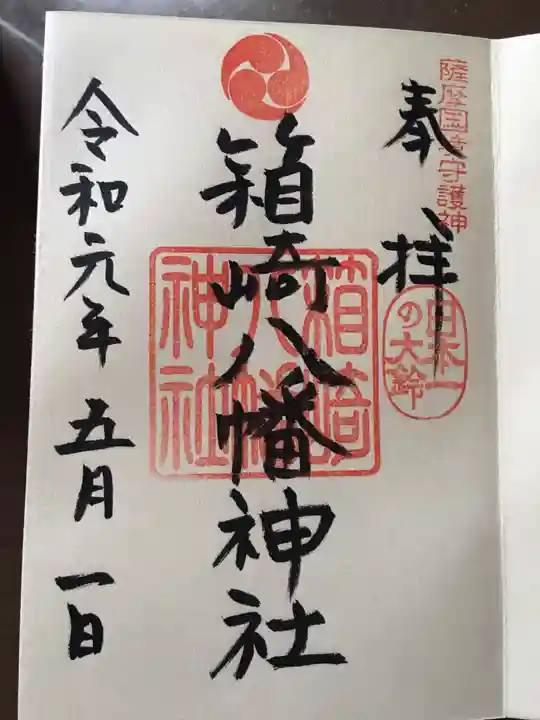 薩摩国境守護神
奉拝
日本一
の大鈴
箱崎八幡神社
箱崎
八幡
神社
令和元年五月一日